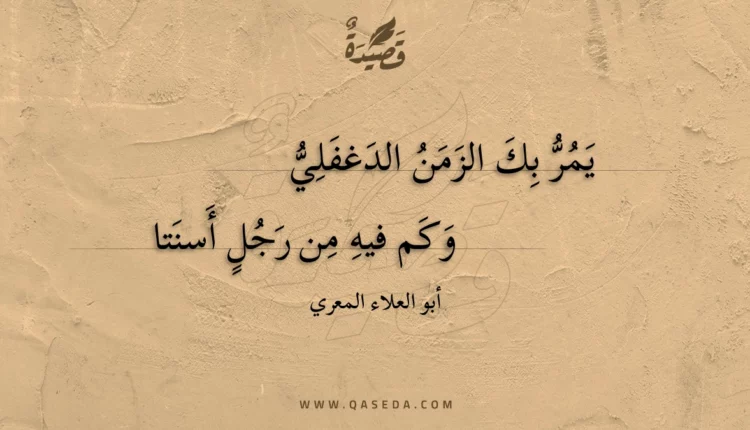 قَصِيْدَةٌ
يَمُرُّ بِكَ الزَمَنُ الدَغفَلِيُّ
وَكَم فيهِ مِن رَجُلٍ أَسنَتا
أبو العلاء المعري
WWW.QASEDA.COM